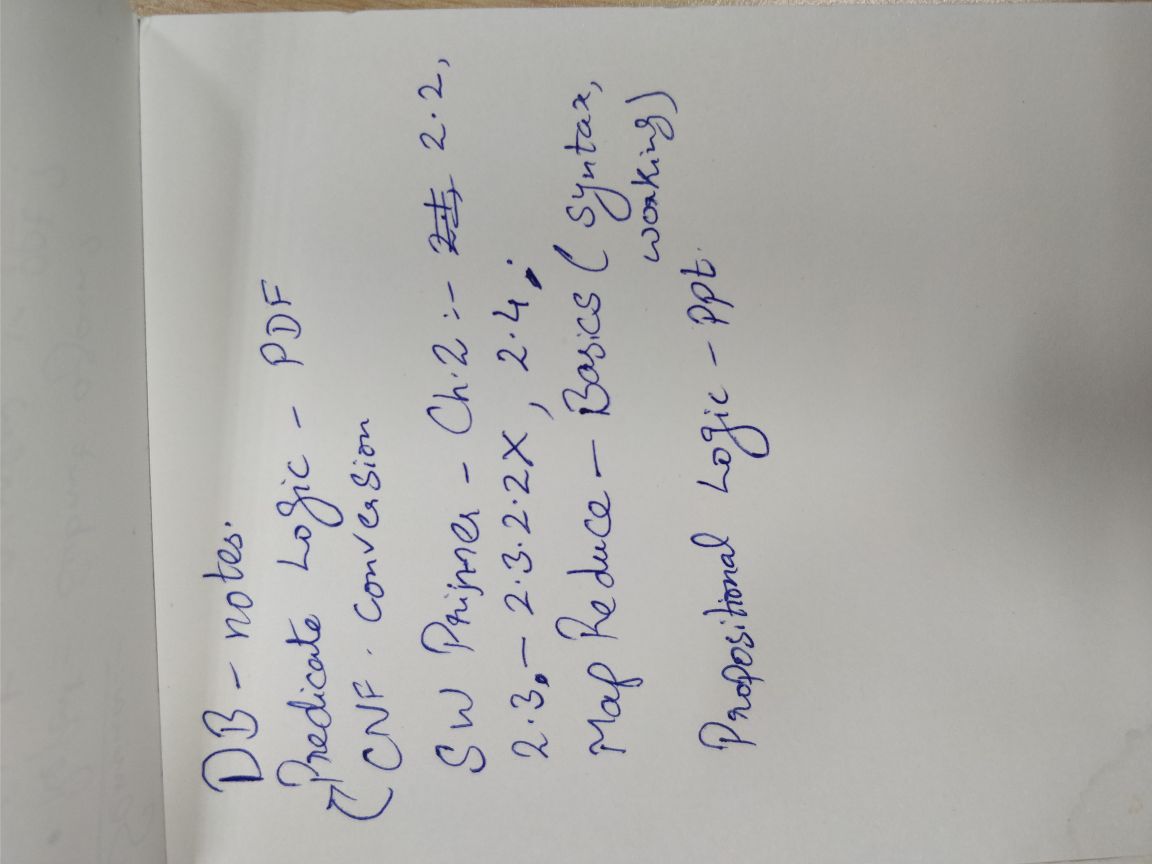 DB - notes.
Predicate Logic - PDF
CNF. Conversion
SW Primer - Ch.2 :- 2.2,
2.3. - 2.3.2.2X, 2.4.
Map Reduce - Basics (Syntax,
working)
Propositional Logic - PPt.